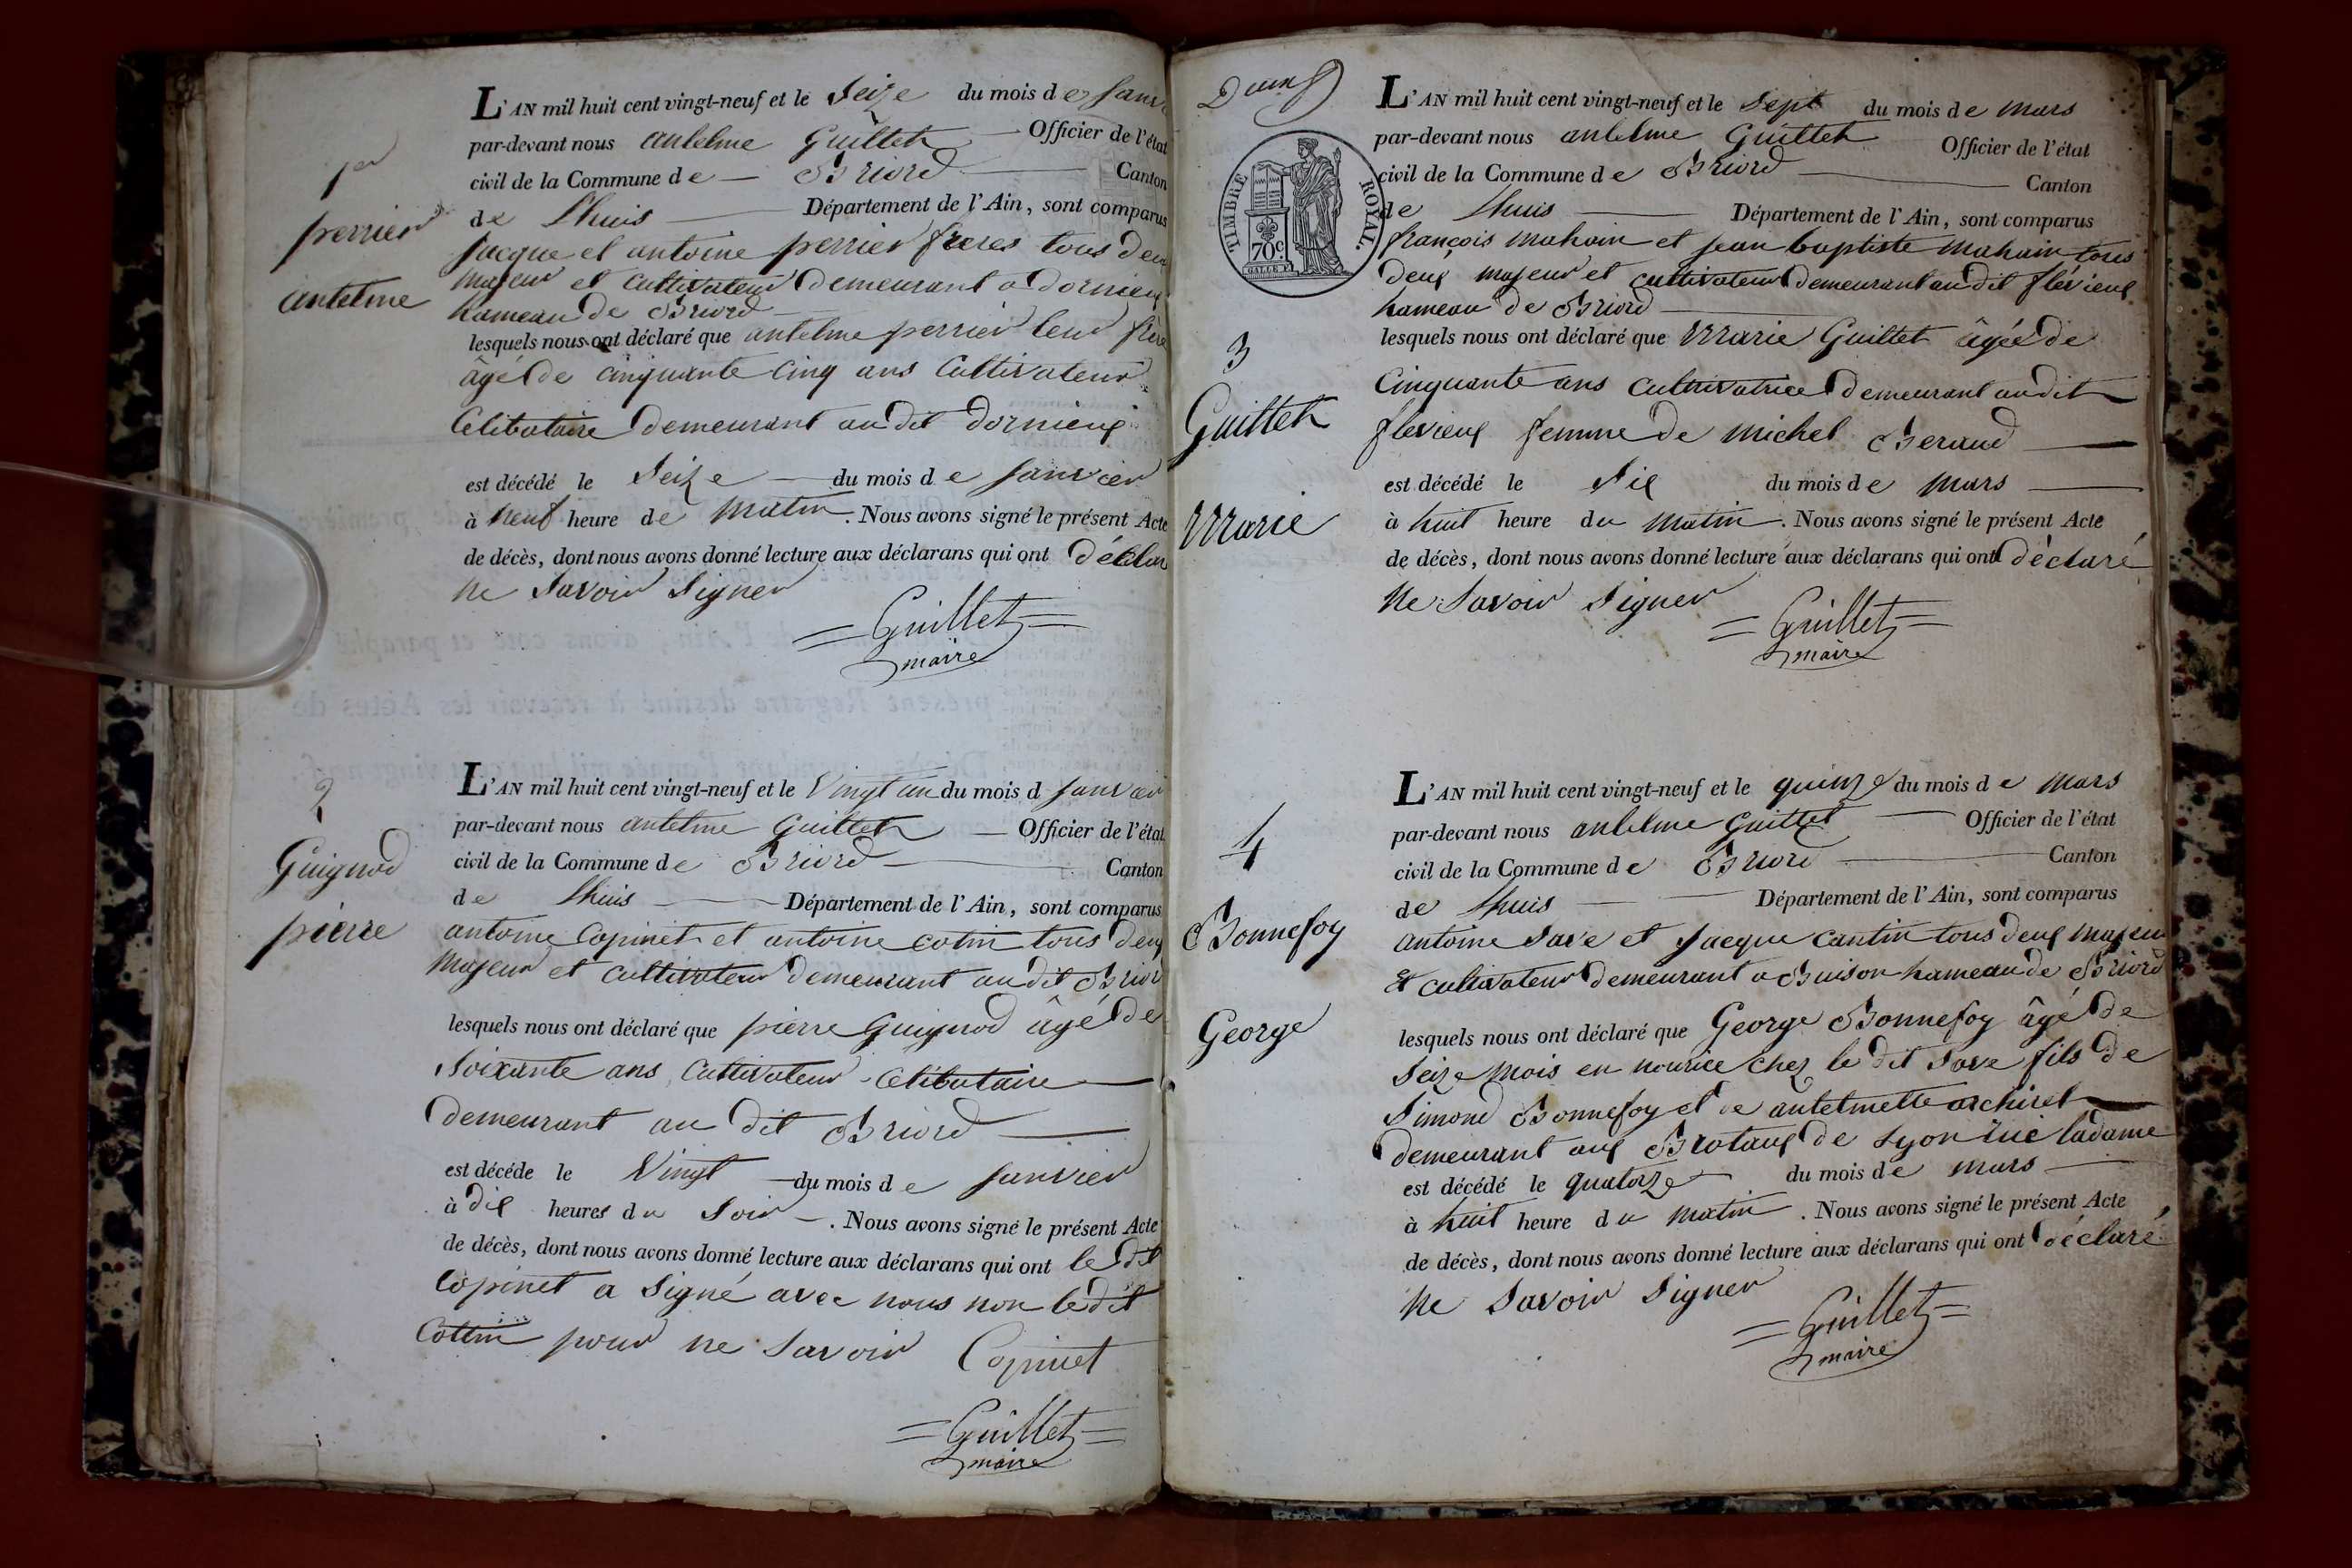 1er
perrier
antelme
L'AN mil huit cent vingt-neuf et le Seize du mois de Janv
par-devant nous antelme Guillet Officier de l'état
civil de la Commune de Briord Canton
de Lhuis Département de l'Ain, sont comparus
Jacque et antoine perrier freres tous deux
majeur et cultivateur demeurant a dornieux
hameau de Briord
lesquels nous ont déclaré que antelme perrier leur frere
âgé de cinquante cinq ans Cultivateur
Célibataire demeurant au dit dornieux
est décédé le Seize du mois de Janvier
à neuf heure de matin. Nous avons signé le présent Acte
de décès, dont nous avons donné lecture aux déclarans qui ont déclar
ne Savoir Signer
Guillet
maire
2
Guignod
pierre
L'AN mil huit cent vingt-neuf et le Vingt un du mois d Janvier
par-devant nous antelme Guillet Officier de l'état
civil de la Commune de Briord Canton
de Lhuis Département de l'Ain, sont comparus
antoine Copinet et antoine cotin tous deux
majeur et cultivateur demeurant au dit Briord
lesquels nous ont déclaré que pierre Guignod âgé de
Soixante ans Cultivateur Célibataire
demeurant au dit Briord
est décéde le Vingt du mois de Janvier
à dix heures du Soir. Nous avons signé le présent Acte
de décès, dont nous avons donné lecture aux déclarans qui ont le dit
Copinet a Signé avec nous non le dit
Cottin pour ne Savoir Copinet
Guillet
maire
Deux
TIMBRE ROYAL.
70c.
L'AN mil huit cent vingt-neuf et le Sept du mois de mars
par-devant nous antelme Guillet Officier de l'état
civil de la Commune de Briord Canton
de Lhuis Département de l'Ain, sont comparus
françois mahain et jean baptiste mahain tous
deux majeur et cultivateur demeurant au dit flévieux
hameau de Briord
3
Guillet
Marie
lesquels nous ont déclaré que Marie Guillet âgée de
Cinquante ans cultivatrice demeurant au dit
flévieux femme de michel Beraud
est décédé le Six du mois de mars
à huit heure du matin. Nous avons signé le présent Acte
de décès, dont nous avons donné lecture aux déclarans qui ont déclaré
ne Savoir Signer
Guillet
maire
4
Bonnefoy
George
L'AN mil huit cent vingt-neuf et le quinze du mois de mars
par-devant nous antelme Guillet Officier de l'état
civil de la Commune de Briord Canton
de Lhuis Département de l'Ain, sont comparus
antoine Save et Jacque cantin tous deux majeur
et cultivateur demeurant a Buison hameau de Briord
lesquels nous ont déclaré que George Bonnefoy âgé de
Seize mois en nourice chez le dit Save fils de
Simond Bonnefoy et de antelmette archiret
demeurant aux Brotaux de Lyon rue ladame
est décédé le quatorze du mois de mars
à huit heure du matin. Nous avons signé le présent Acte
de décès, dont nous avons donné lecture aux déclarans qui ont déclaré
ne Savoir Signer
Guillet
maire